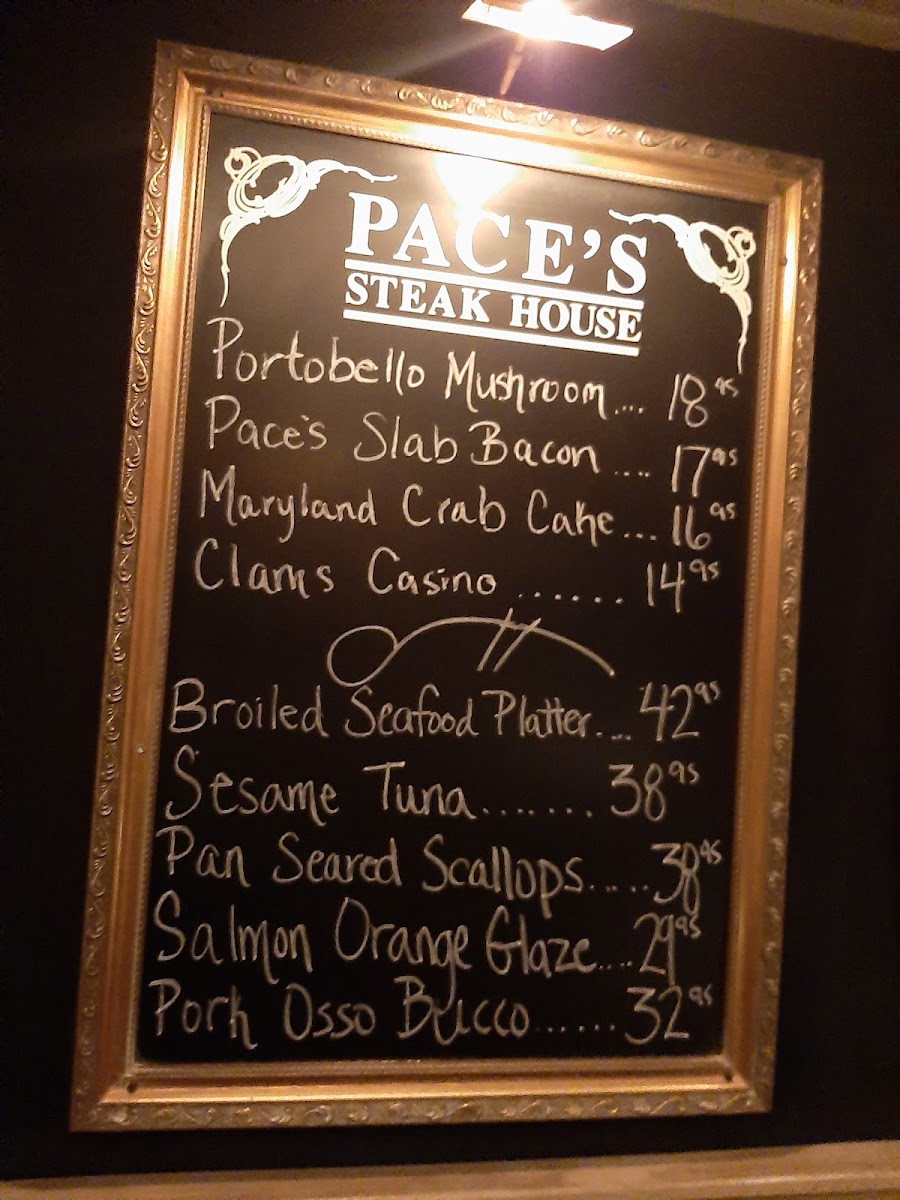 PACE'S
STEAK HOUSE
Portobello Mushroom.... 18 95
Pace's Slab Bacon .... 17 95
Maryland Crab Cake... 16 95
Clams Casino ...... 14 95
Broiled Seafood Platter.... 42 95
Sesame Tuna....... 38 95
Pan Seared Scallops..... 38 95
Salmon Orange Glaze.... 29 95
Pork Osso Bucco...... 32 95